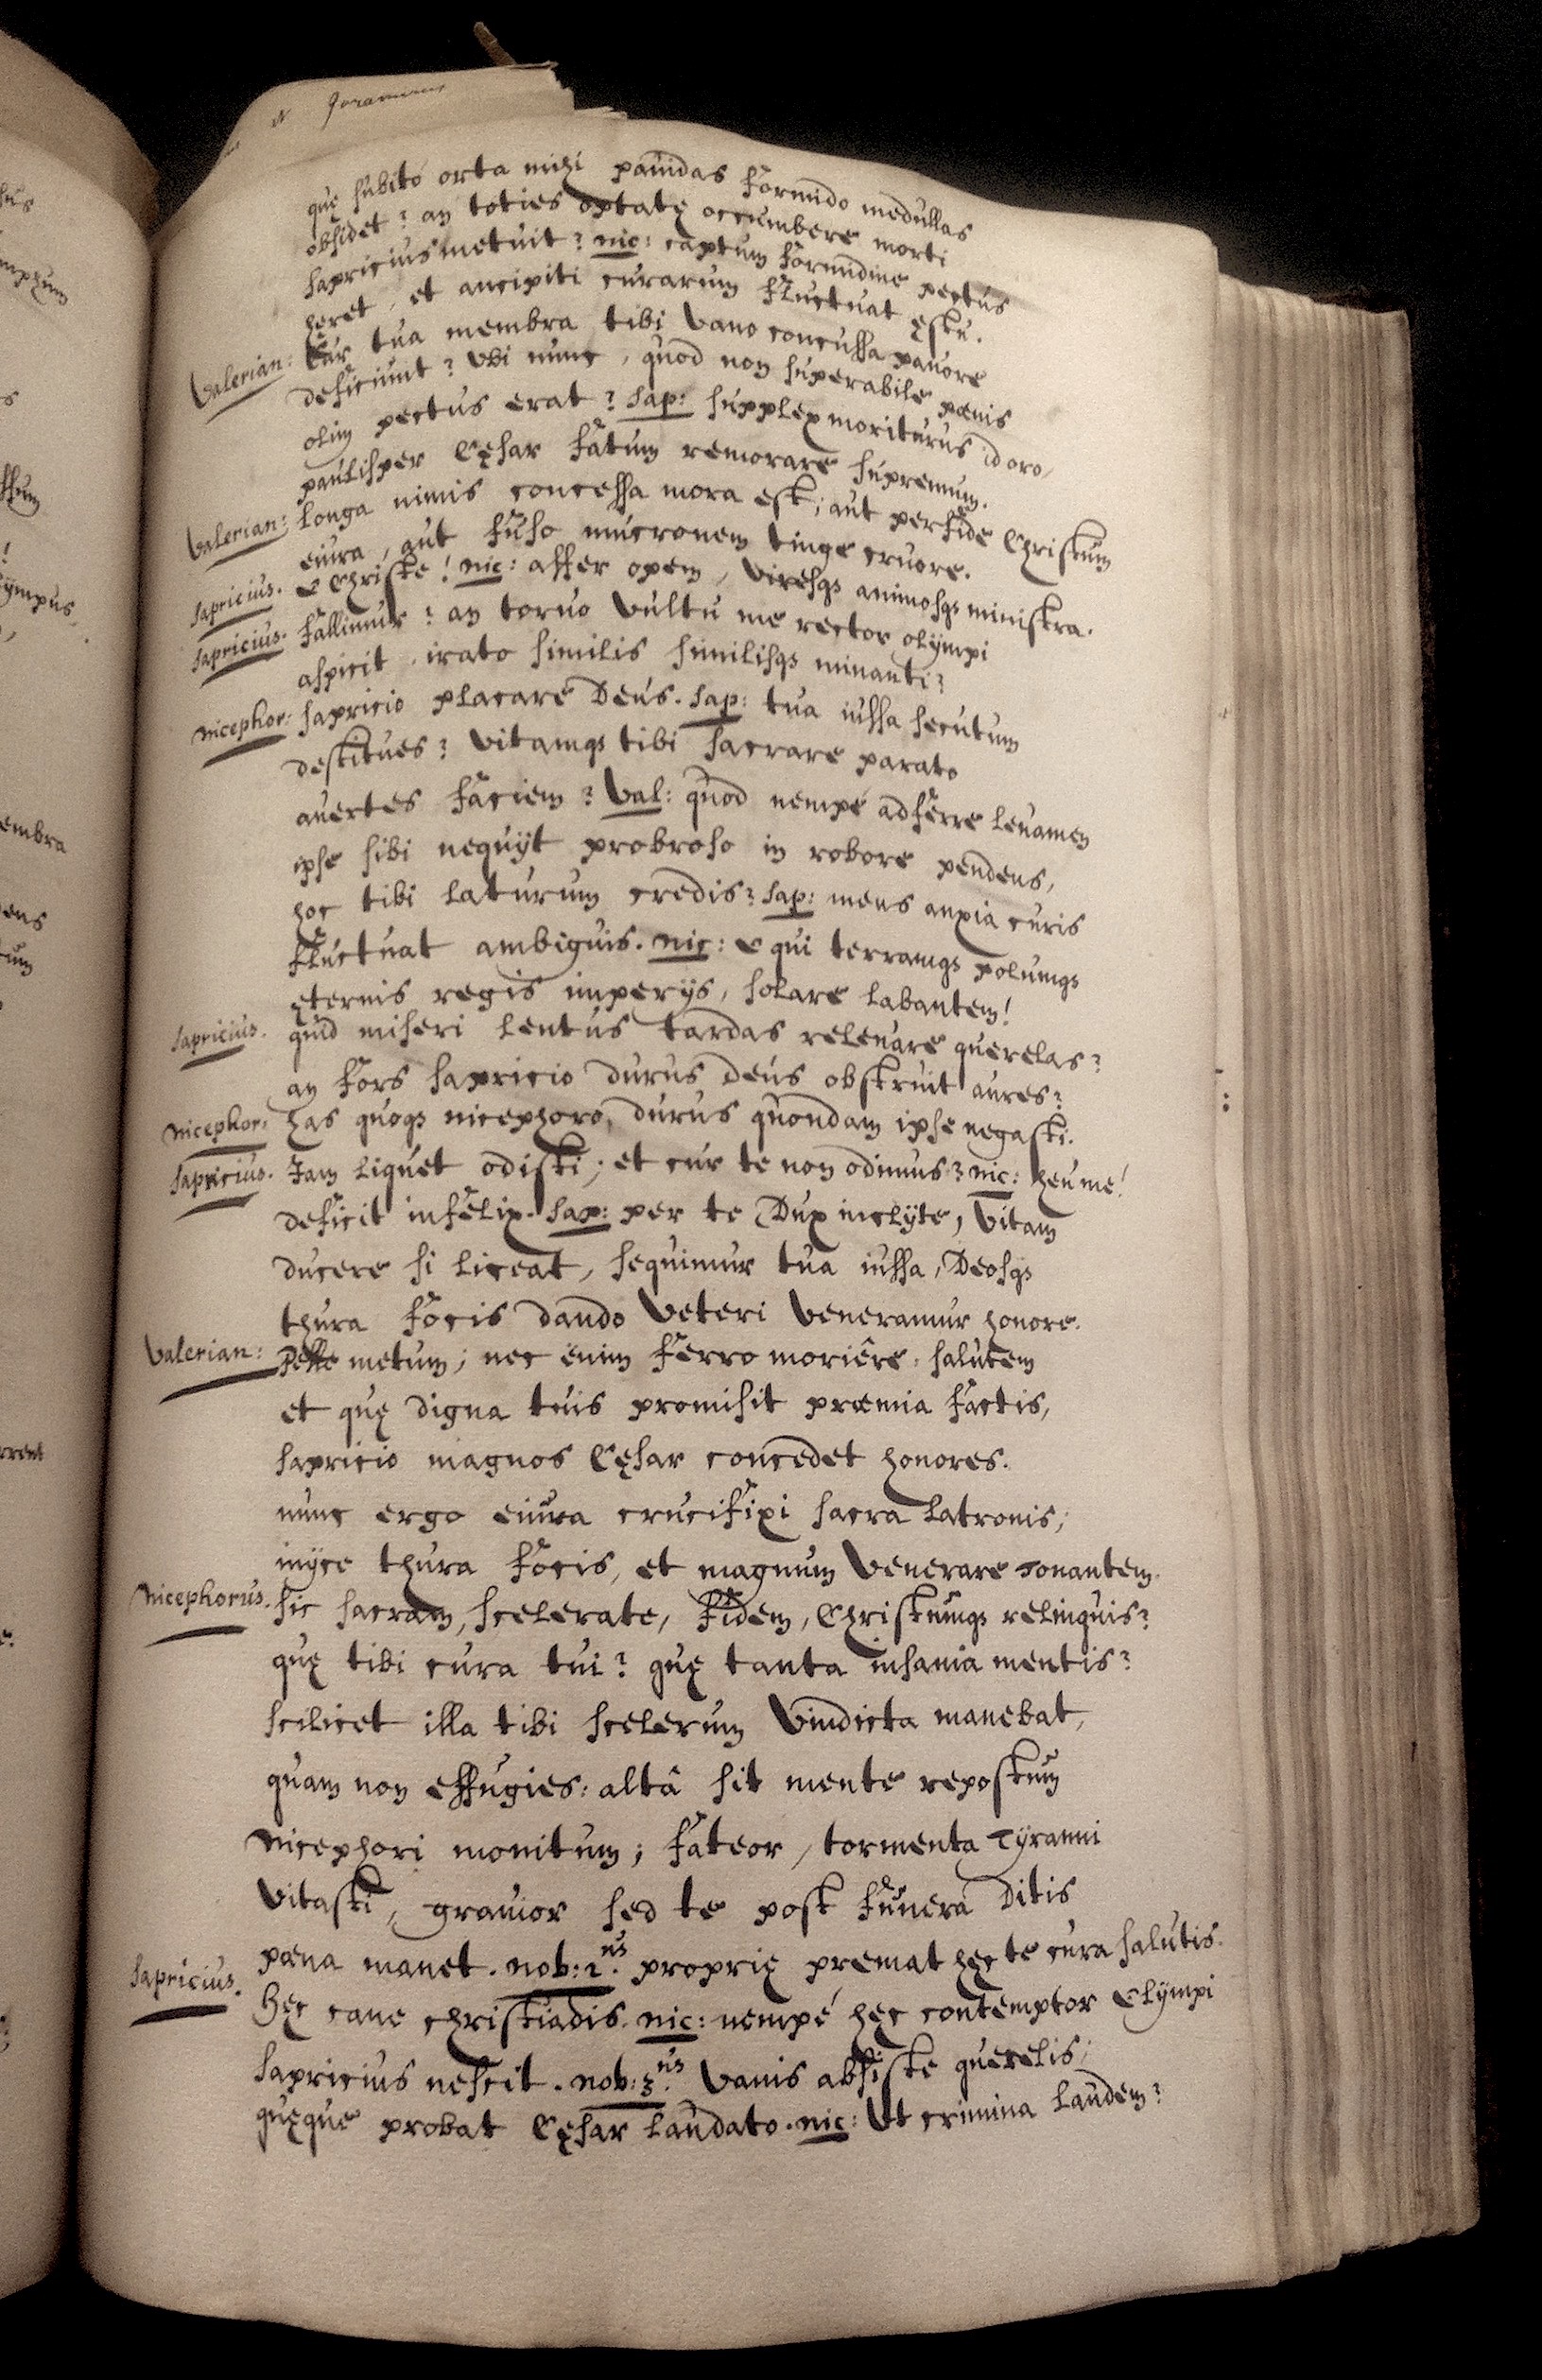 quę subito orta mihi pauidas formido medullas
obsidet? an toties optatę occumbere morti
Sapricius metuit? nic: captum formidine pectus
hęret, et ancipiti curarum fluctuat ęstu.
Valerian: Cur tua membra tibi vano concussa pauore
deficiunt? Vbi nunc, quod non superabile pœnis
olim pectus erat? Sap: supplex moriturus id oro,
paulisper Cęsar fatum remorare supremum.
Valerian: Longa nimis concessa mora est; aut perfide Christum
eiura, aut fuso mucronem tinge cruore.
Sapricius. O Christe! nic: affer opem, viresqꝫ animosqꝫ ministra.
Sapricius. Fallimur? an toruo vultu me rector olÿmpi
aspicit, irato similis similisqꝫ minanti?
Nicephor: Sapricio placare Deus. Sap: tua iussa secutum
destitues? vitamqꝫ tibi sacrare parato
auertes faciem? Val: quod nempé adferre leuamen
ipse sibi nequÿt probroso in robore pendens,
hoc tibi laturum credis? Sap: mens anxia curis
fluctuat ambiguis. nic: O qui terramqꝫ polumqꝫ
ęternis regis imperÿs, solare labantem!
Sapricius. quid miseri lentus tardas releuare querelas?
an fors Sapricio durus deus obstruit aures?
Nicephor: has quoqꝫ nicephoro, durus quondam ipse negasti.
Sapricius. Jam liquet odisti; et cur te non odimus? nic: heu me!
deficit infelix. Sap: per te Dux inclÿte, vitam
ducere si liceat, sequimur tua iussa, Deosqꝫ
thura focis dando veteri veneramur honore.
Valerian: Pelle metum; nec enim ferro moriêre. salutem
et quę digna tuis promisit præmia factis,
Sapricio magnos Cęsar concedet honores.
nunc ergo eiura crucifixi sacra latronis;
inÿce thura focis, et magnum venerare Tonantem.
Nicephorus. Sic sacram, scelerate, fidem, Christumqꝫ relinquis?
quę tibi cura tui? quę tanta insania mentis?
scilicet illa tibi scelerum vindicta manebat,
quam non effugies: altâ sit mente repostum
Nicephori monitum; fateor, tormenta Tÿranni
vitasti, grauior sed te post funera Ditis
pœna manet. nob: 2.us proprię premat hęc te cura salutis.
Sapricius. Hęc cane christiadis. nic: nempé hęc contemptor Olÿmpi
Sapricius nescit. nob: 3.us vanis absiste querelis;
quęque probat Cęsar laudato. nic: Ut crimina laudem?